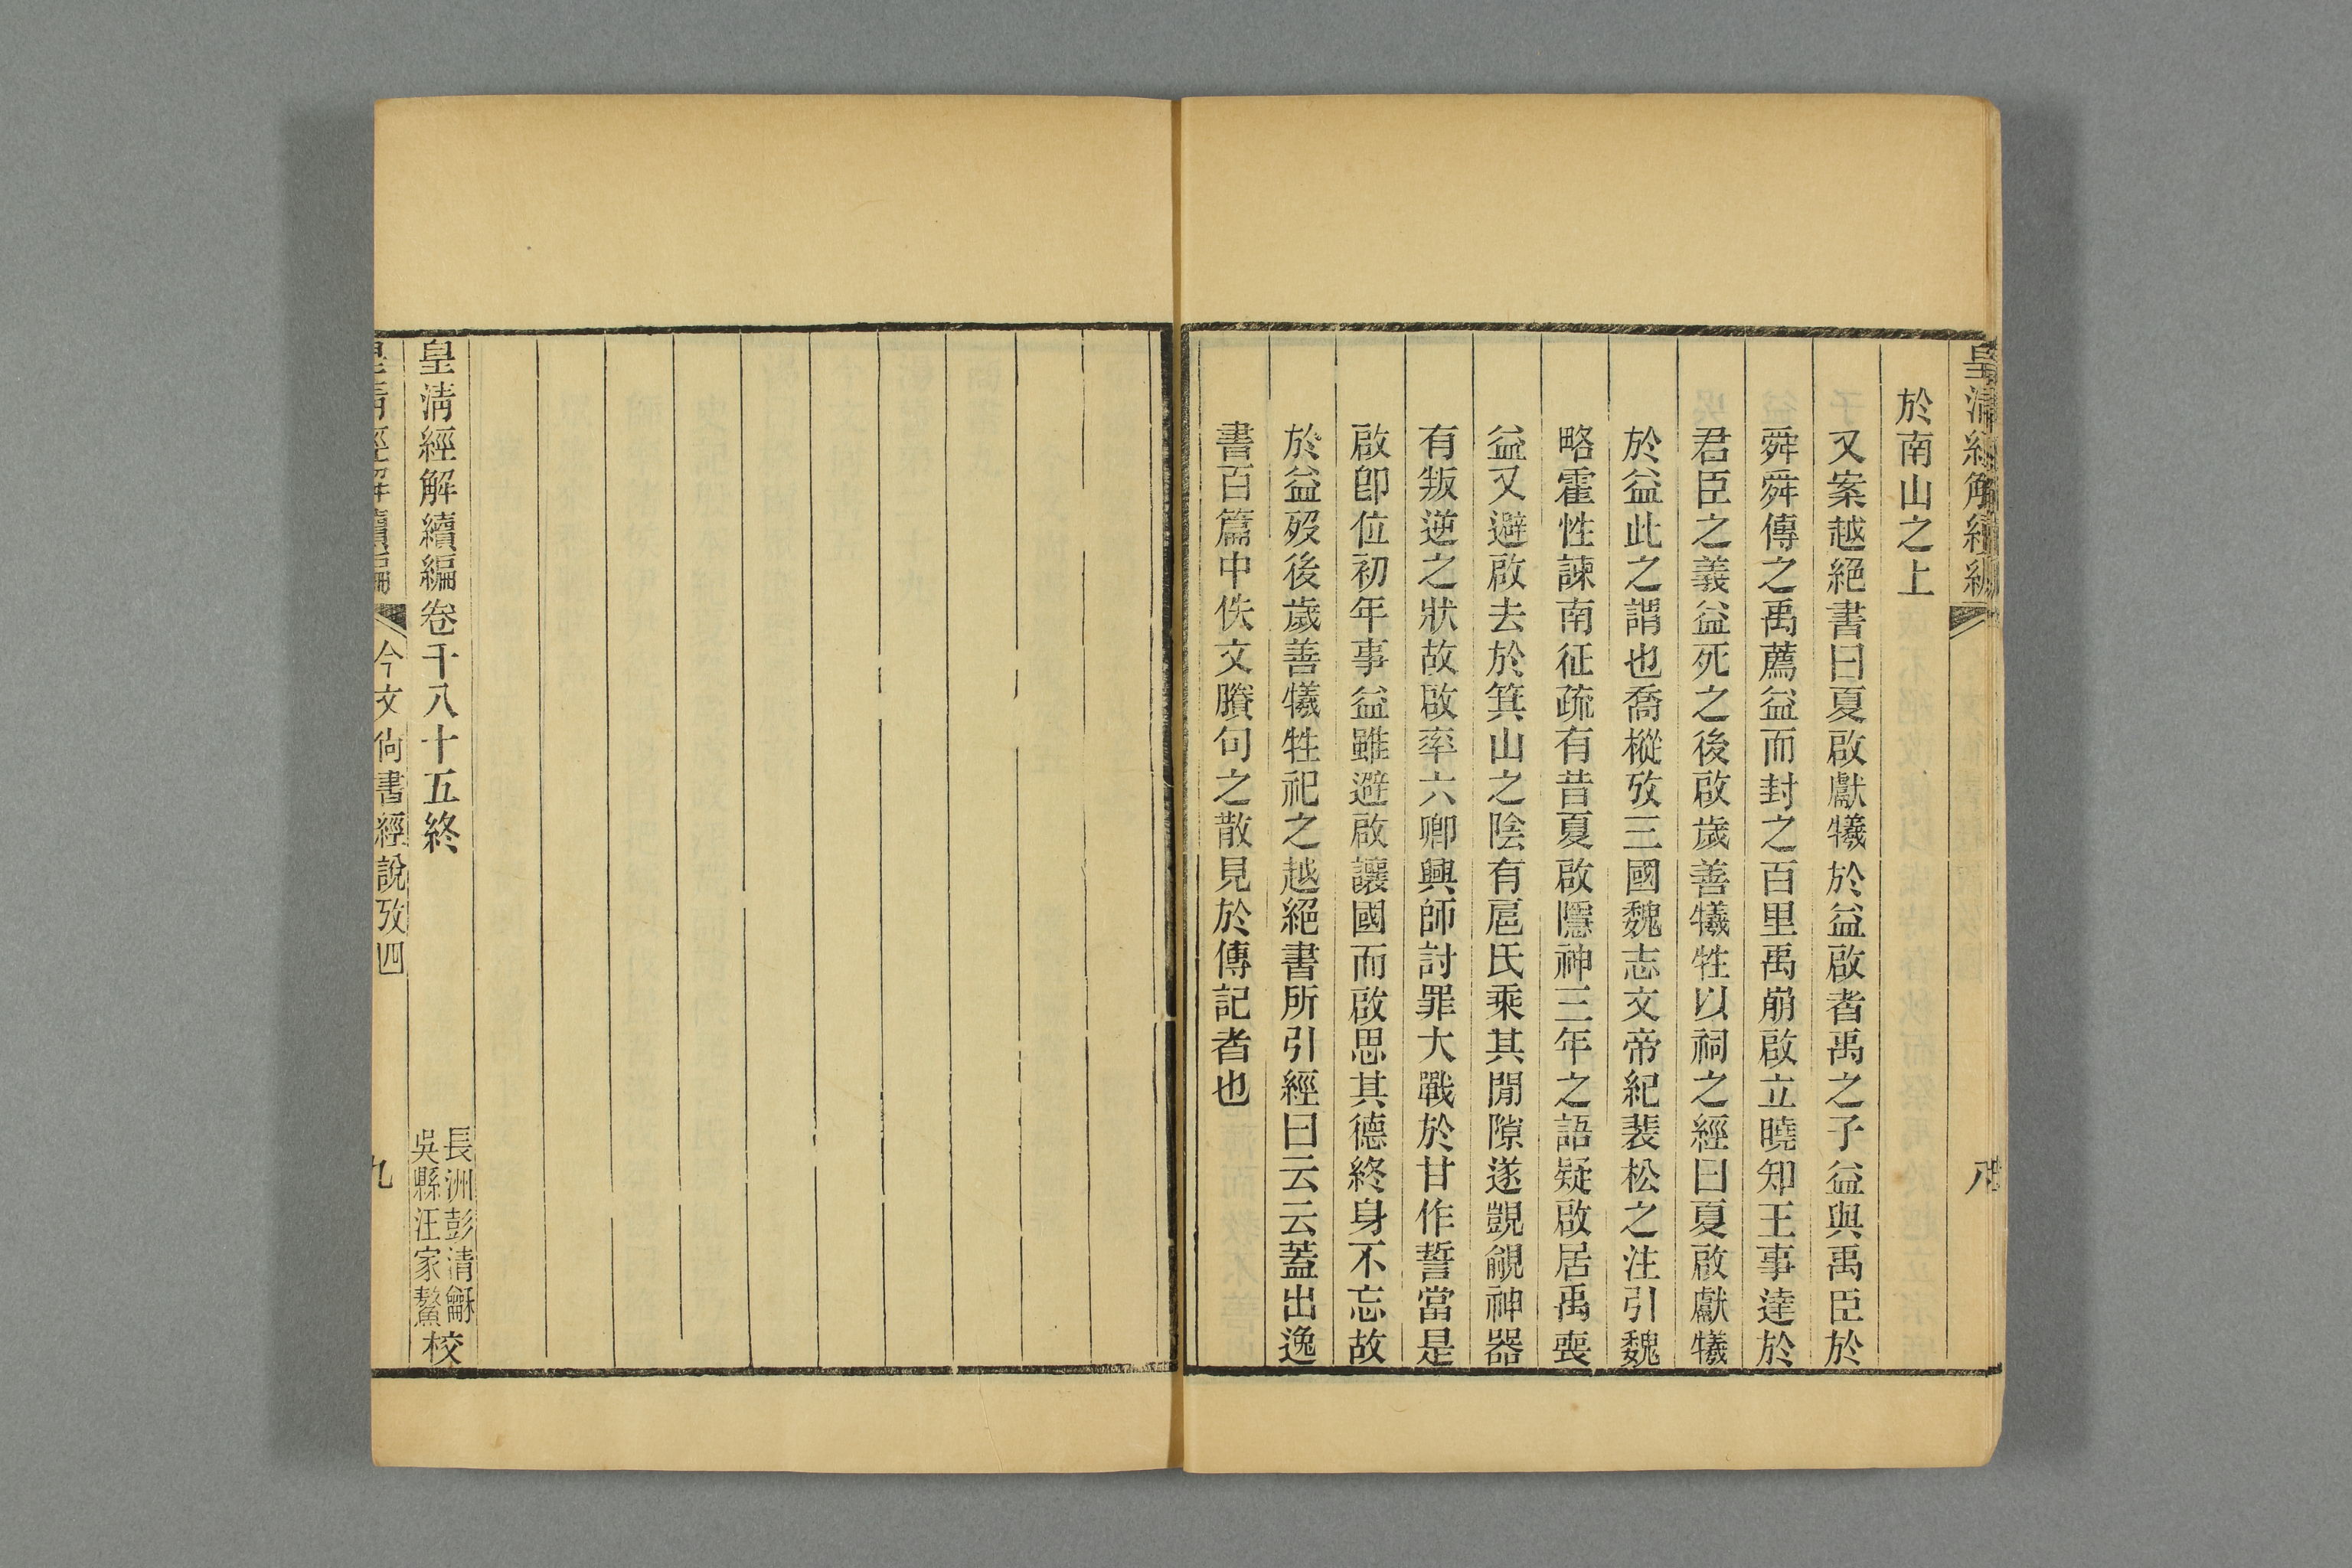 皇清經解續編
八
於南山之上
又案越絕書曰夏啟獻犧於益啟者禹之子益與禹臣於
舜舜傳之禹薦益而封之百里禹崩啟立曉知王事達於
君臣之義益死之後啟歲善犧牲以祠之經曰夏啟獻犧
於益此之謂也喬樅攷三國魏志文帝紀裴松之注引魏
略霍性諫南征疏有昔夏啟隱神三年之語疑啟居禹喪
益又避啟去於箕山之陰有扈氏乘其閒隙遂覬覦神器
有叛逆之狀故啟率六卿興師討罪大戰於甘作誓當是
啟卽位初年事益雖避啟讓國而啟思其德終身不忘故
於益歿後歲善犧牲祀之越絕書所引經曰云云蓋出逸
書百篇中佚文賸句之散見於傳記者也
皇清經解續編卷千八十五終
長洲彭清龢
吳縣汪家鰲
校
皇清經解續編
今文尙書經說攷四
九